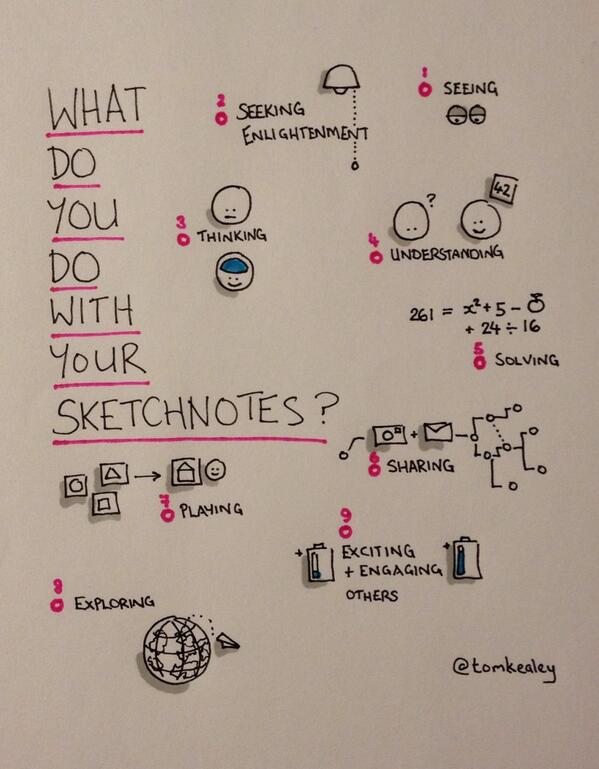 WHAT
DO
YOU
DO
WITH
YOUR
SKETCHNOTES?
1
SEEING
2
SEEKING
ENLIGHTENMENT
3
THINKING
?
42
4
UNDERSTANDING
261 = x² + 5 -
+ 24 ÷ 16
5
SOLVING
+
6
SHARING
7
PLAYING
8
EXPLORING
9
+ EXCITING +
+ ENGAGING
OTHERS
@tomkealey